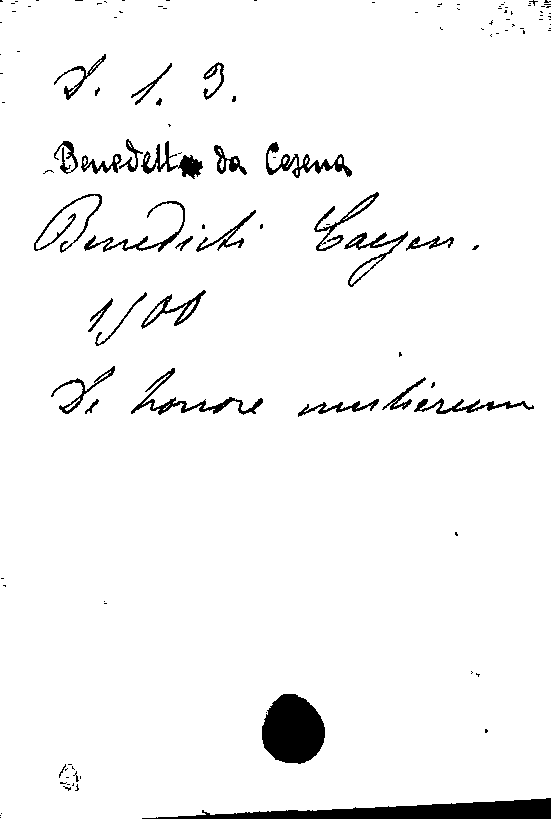 D. 1. 3.
Benedetto da Cesena
Benedicti Caesen.
1500
De honore mulierum